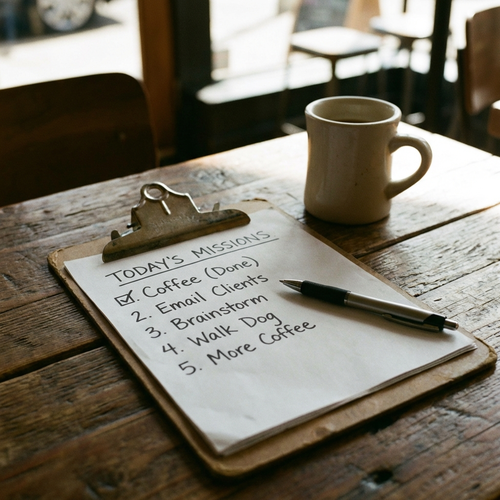 TODAY'S MISSIONS
☑ Coffee (Done)
2. Email Clients
3. Brainstorm
4. Walk Dog
5. More Coffee